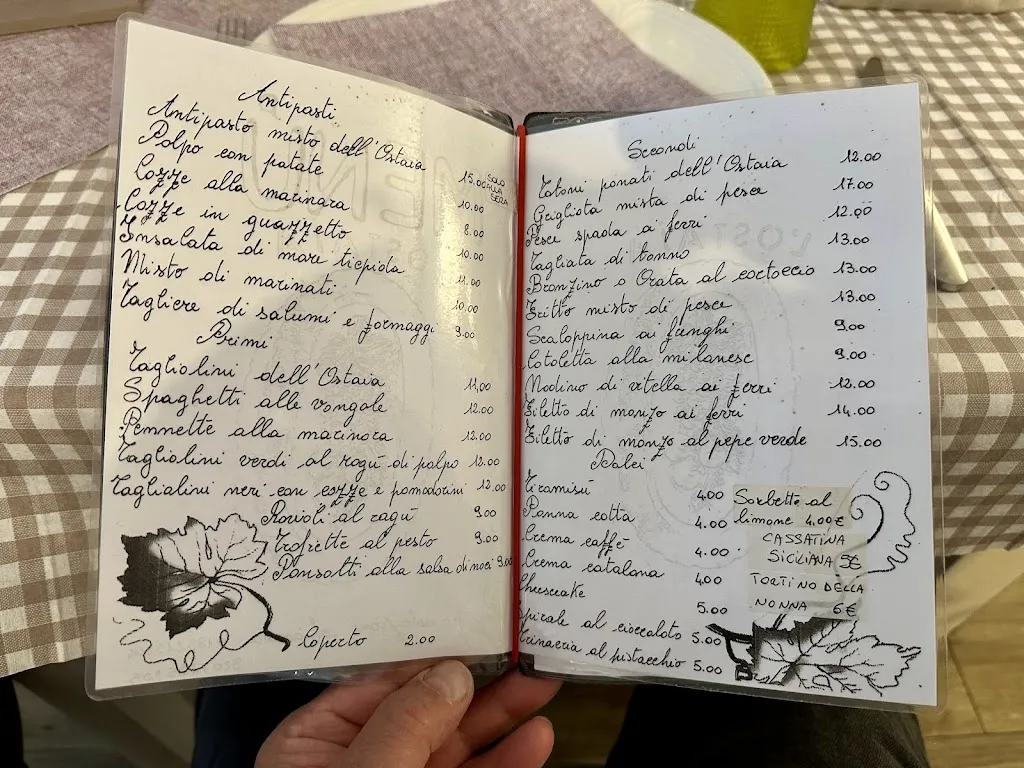 Antipasti
Antipasto misto dell'Ostaia 15.00 SOLO ALLA SERA
Polpo con patate 10.00
Cozze alla marinara 8.00
Cozze in guazzetto 10.00
Insalata di mare tiepida 11.00
Misto di marinati 10.00
Tagliere di salumi e formaggi 9.00
Primi
Tagliolini dell'Ostaia 11,00
Spaghetti alle vongole 12.00
Pennette alla marinara 12.00
Tagliolini verdi al ragù di polpo 12.00
Tagliolini neri con cozze e pomodorini 12.00
Ravioli al ragù 9.00
Trofiette al pesto 9.00
Pansotti alla salsa di noci 9.00
Coperto 2.00
Secondi
Totani ponati dell'Ostaia 12.00
Grigliata mista di pesce 17.00
Pesce spada ai ferri 12.00
Tagliata di tonno 13.00
Branzino o Orata al cartoccio 13.00
Fritto misto di pesce 13.00
Scaloppina ai funghi 9.00
Cotoletta alla milanese 9.00
Nodino di vitella ai ferri 12.00
Filetto di manzo ai ferri 14.00
Filetto di manzo al pepe verde 15.00
Dolci
Tiramisù 4.00
Panna cotta 4.00
Crema caffè 4.00
Crema catalana 4.00
Cheesecake 5.00
Spirale al cioccolato 5.00
Trinacria al pistacchio 5.00
Sorbetto al
limone 4.00€
CASSATINA
SICILIANA 5€
TORTINO DELLA
NONNA 6€